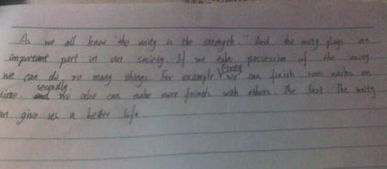 As we all know "the unity is the strength." And the unity plays an
important part in our society. If we take possession of the unity
we can do so many things. For example Firstly we can finish some works on
time. secondly we also can make more friends with others. The last The unity
can give us a better life.